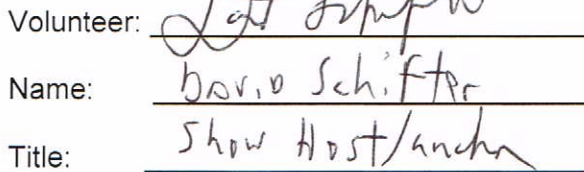 Volunteer:
Name: David Schifter
Title: Show Host/anchor